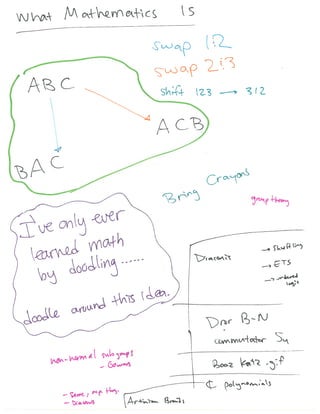 What Mathematics Is
swap 1:2
swap 2:3
shift 123 → 312
ABC
ACB
BAC
Bring Crayons
group theory
I've only ever
learned math
by doodling......
doodle around this idea.
Diaconis
→ Shuffling
→ ETS
Dror B-N
commutator S4
Booz Katz .gif
ℂ polynomials
non-normal subgroups
- Gowers
- Diaconis
Artinian Braids